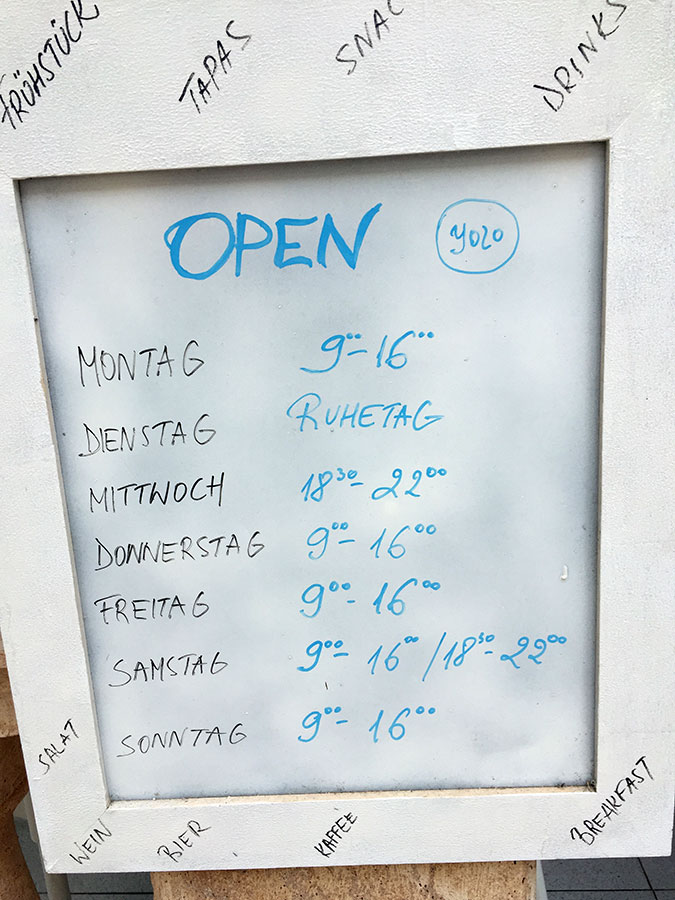 FRÜHSTÜCK TAPAS SNAC DRINKS
OPEN yolo
MONTAG 9⁰⁰-16⁰⁰
DIENSTAG RUHETAG
MITTWOCH 18³⁰- 22⁰⁰
DONNERSTAG 9⁰⁰- 16⁰⁰
FREITAG 9⁰⁰- 16⁰⁰
SAMSTAG 9⁰⁰- 16⁰⁰ / 18³⁰- 22⁰⁰
SONNTAG 9⁰⁰- 16⁰⁰
SALAT
WEIN BIER KAFFEE BREAKFAST